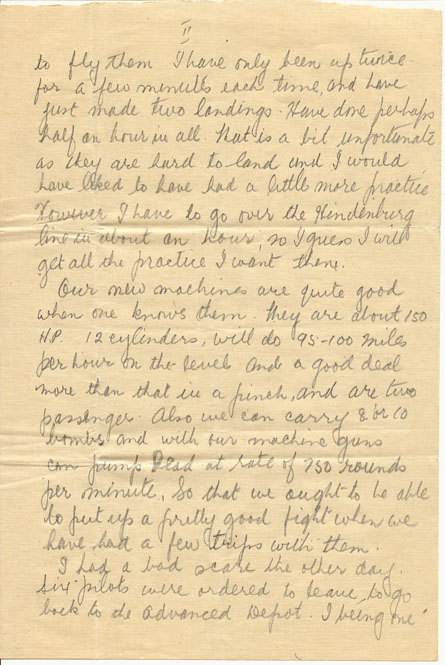 II
to fly them I have only been up twice
for a few minutes each time, and have
just made two landings. Have done perhaps
half an hour in all. That is a bit unfortunate
as they are hard to land and I would
have liked to have had a little more practice
However I have to go over the Hindenburg
line in about an hour, so I guess I will
get all the practice I want there.
Our new machines are quite good
when one knows them. They are about 150
H.P. 12 cylinders, will do 95-100 miles
per hour on the level and a good deal
more than that in a pinch, and are two
passenger. Also we can carry 8 or 10
bombs and with our machine guns
can pump lead at rate of 750 rounds
per minute, So that we ought to be able
to put up a pretty good fight when we
have had a few trips with them.
I had a bad scare the other day.
Six pilots were ordered to leave to go
back to the Advanced Depot. I being one